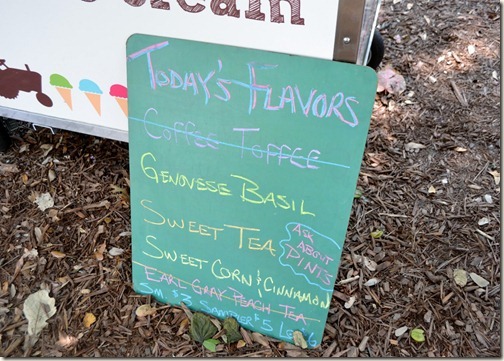 Today's Flavors
Coffee Toffee
Genovese Basil
Sweet Tea
Ask
About
Pints
Sweet Corn & Cinnamon
Earl Gray Peach Tea
Sm. $3 Sampler $5